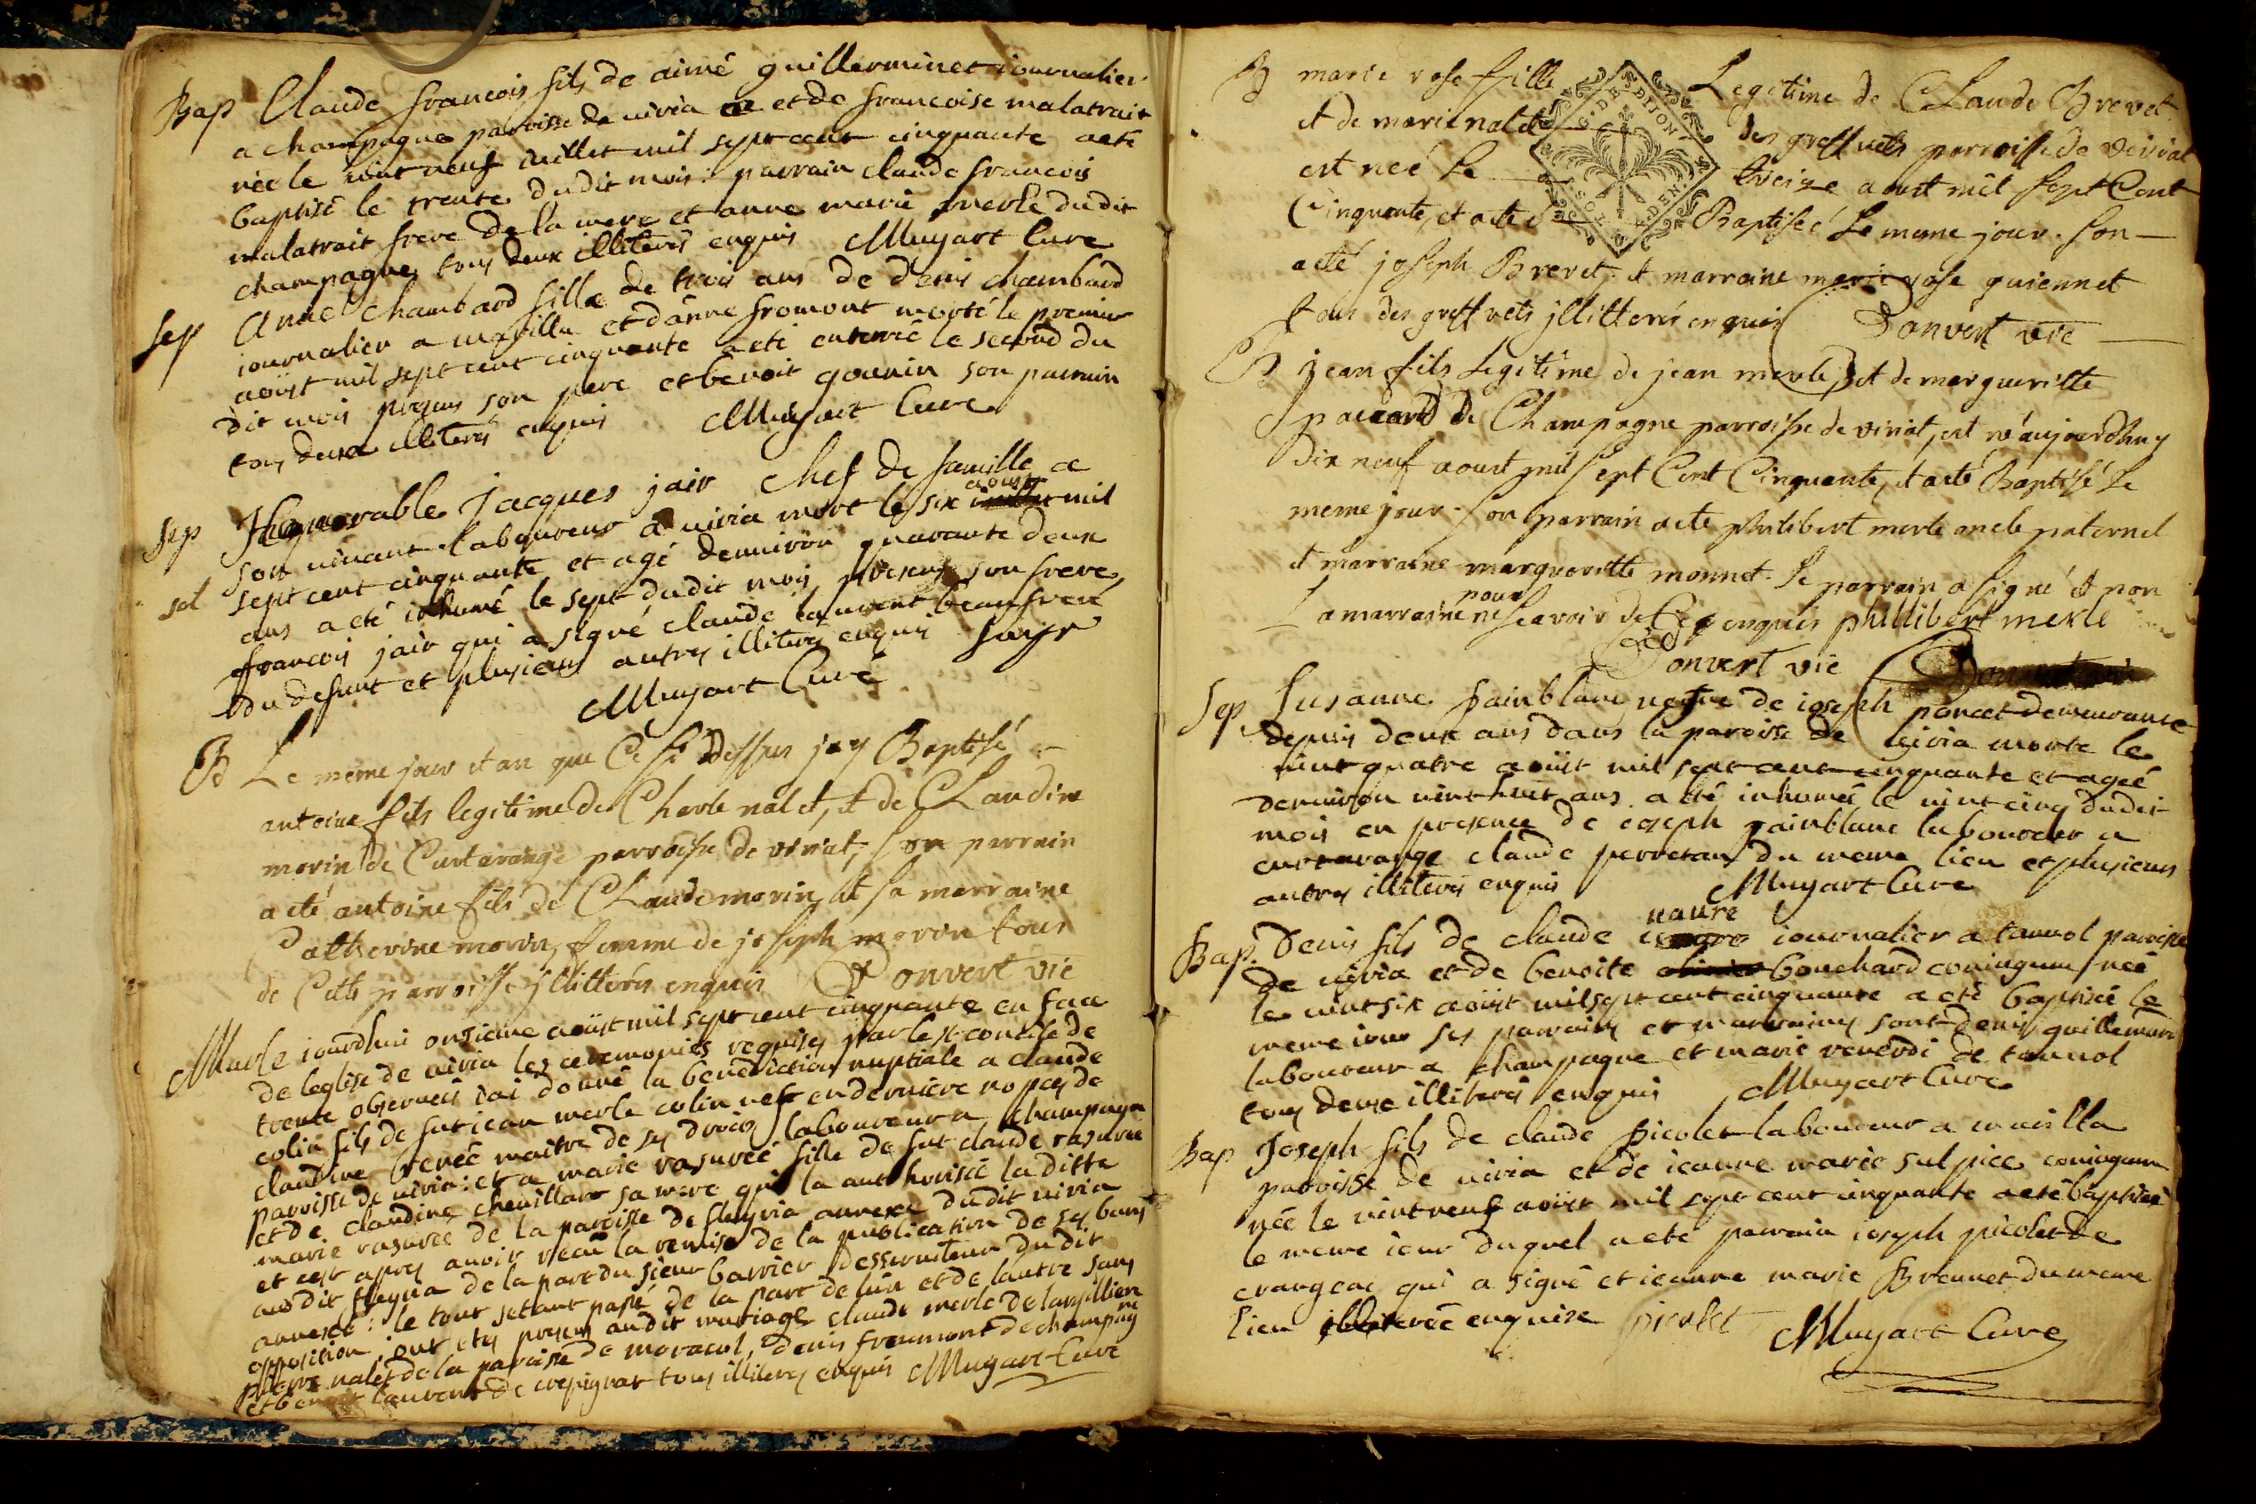 Bap Claude francois fils de aimé guillerminet iournalier
a champagne paroisse de uiria et de francoise malatrait
née le uint neuf iuillet mil sept cent cinquante a eté
baptisé le trente dudit mois: parrain claude francois
malatrait frere de la mere et anne marie merle dudit
champagne tous deux illiterés enquis Muyart Curé
Sep Anne Chambard fille de trois ans de denis chambard
iournalier a et danne fromont morte le premier
aoüst mil sept cent cinquante a eté enterré le second du
dit mois presens son pere et benoit gouuin son parrain
tous deux illiterés enquis Muyart Curé
Sep Honnorable Jacques jair chef de famille a
aoust
son uiuant laboureur a uiria mort le six mil
sol sept cent cinquante et agé denuiron quarante deux
ans a eté inhumé le sept dudit mois presens son frere
francois jair qui a signé claude laurent beaufrere
du defunt et plusieurs autres illiterés enquis jayr
Muyart Curé
B Le meme jour et an que Cy dessus jay Baptisé
antoine fils legitime de Charle nalet, et de CLaudine
morin de Curtarange parroisse de viriat, son parrain
a eté antoine fils de CLaude morin, et sa marraine
Catherine morin, femme de joseph morin tous
de Cette parroisse jllitterés enquis Donvert vic
Mar Le iourdhui onzieme aoüst mil sept cent cinquante en face
de leglise de uiria les ceremonies requises par le st concile de
trente obseruées iai donné la benediction nuptiale a claude
colin fils de fut iean merle colin uef en derniere nopces de
claudine beneé maitre de ses droits laboureur a champagne
paroisse de uiria: et a marie rasureé fille de fut claude rasurée
et de claudine cheuillard sa mere qui la authorisée la ditte
marie rasurée de la paroisse de fleyria annexe dudit uiria
et ce apres auoir receu la remise de la publication de ses bans
audit fleyria de la part du sieur barrier desseruiteur dudit
annexe: le tout setant passé de la part de lun et de lautre sans
opposition, ont etés presens audit mariage claude merle de
pierre nalet de la paroisse de maracol, denis fromont de champagne
et benoit laurent de crepignat tous illiterés enquis Muyart Curé
B marie rose fille Legitime de CLaude Brevet
G. DE DIJON DEUX SOLS
et de marie nalet des greffets parroisse de viriat
est neé Le treize aoust mil sept Cent
Cinquante, et a eté Baptiseé Le meme jour. son
a eté joseph Brevet et marraine marie rose guiennet
tous des greffets jllitterés enquis Donvert vic
B jean fils Legitime de jean merle, et de margueritte
paccard de Champagne parroisse de viriat, est né aujourdhuy
dix neuf aoust mil sept Cent Cinquante, et a eté Baptisé Le
meme jour. son parrain a eté philibert merle oncle paternel
et marraine marguerite monnet. Le parrain a signé et non
pour
La marraine ne sçavoir de Ce enquis phillibert merle
Donvert vic
Sep Susanne painblanc uefue de ioseph poncet demeurante
depuis deux ans dans la paroisse de uiria morte le
uint quatre aoüst mil sept cent cinquante et ageé
denuiron uint huit ans a eté inhumée le uint cinq dudit
mois en presence de ioseph painblanc laboureur a
curtarange claude perretan du meme lieu et plusieurs
autres illiterés enquis Muyart Curé
uaure
Bap. Denis fils de claude iournalier a tannol paroisse
de uiria et de benoite bouchard coniquens née
le uint six aoüst mil sept cent cinquante a eté baptisé le
meme iour ses parrains et marraines sont denis guillemin
laboureur a champagne et marie uenerdi de tannol
tous deux illiterés enquis Muyart Curé
Bap Joseph fils de claude picolet laboureur a
paroisse de uiria et de ieanne marie sulpice
née le uint neuf aoüst mil sept cent cinquante a eté baptisé
le meme iour duquel a eté parrain ioseph picolet de
crangeac qui a signé et ieanne marie Brennet du meme
lieu illiterée enquise picolet Muyart Curé